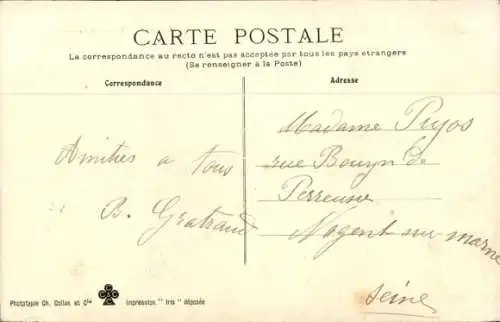 CARTE POSTALE
La correspondance au recto n'est pas acceptée par tous les pays étrangers
(Se renseigner à la Poste)
Correspondance
Adresse
Amitiés a tous
B. Gratraud
Madame Pujos
rue Bouzyn de
Perreuse
Nogent sur marne
Seine
Phototypie Ch. Collas et Cie
C C & C
Impression " Iris " déposée